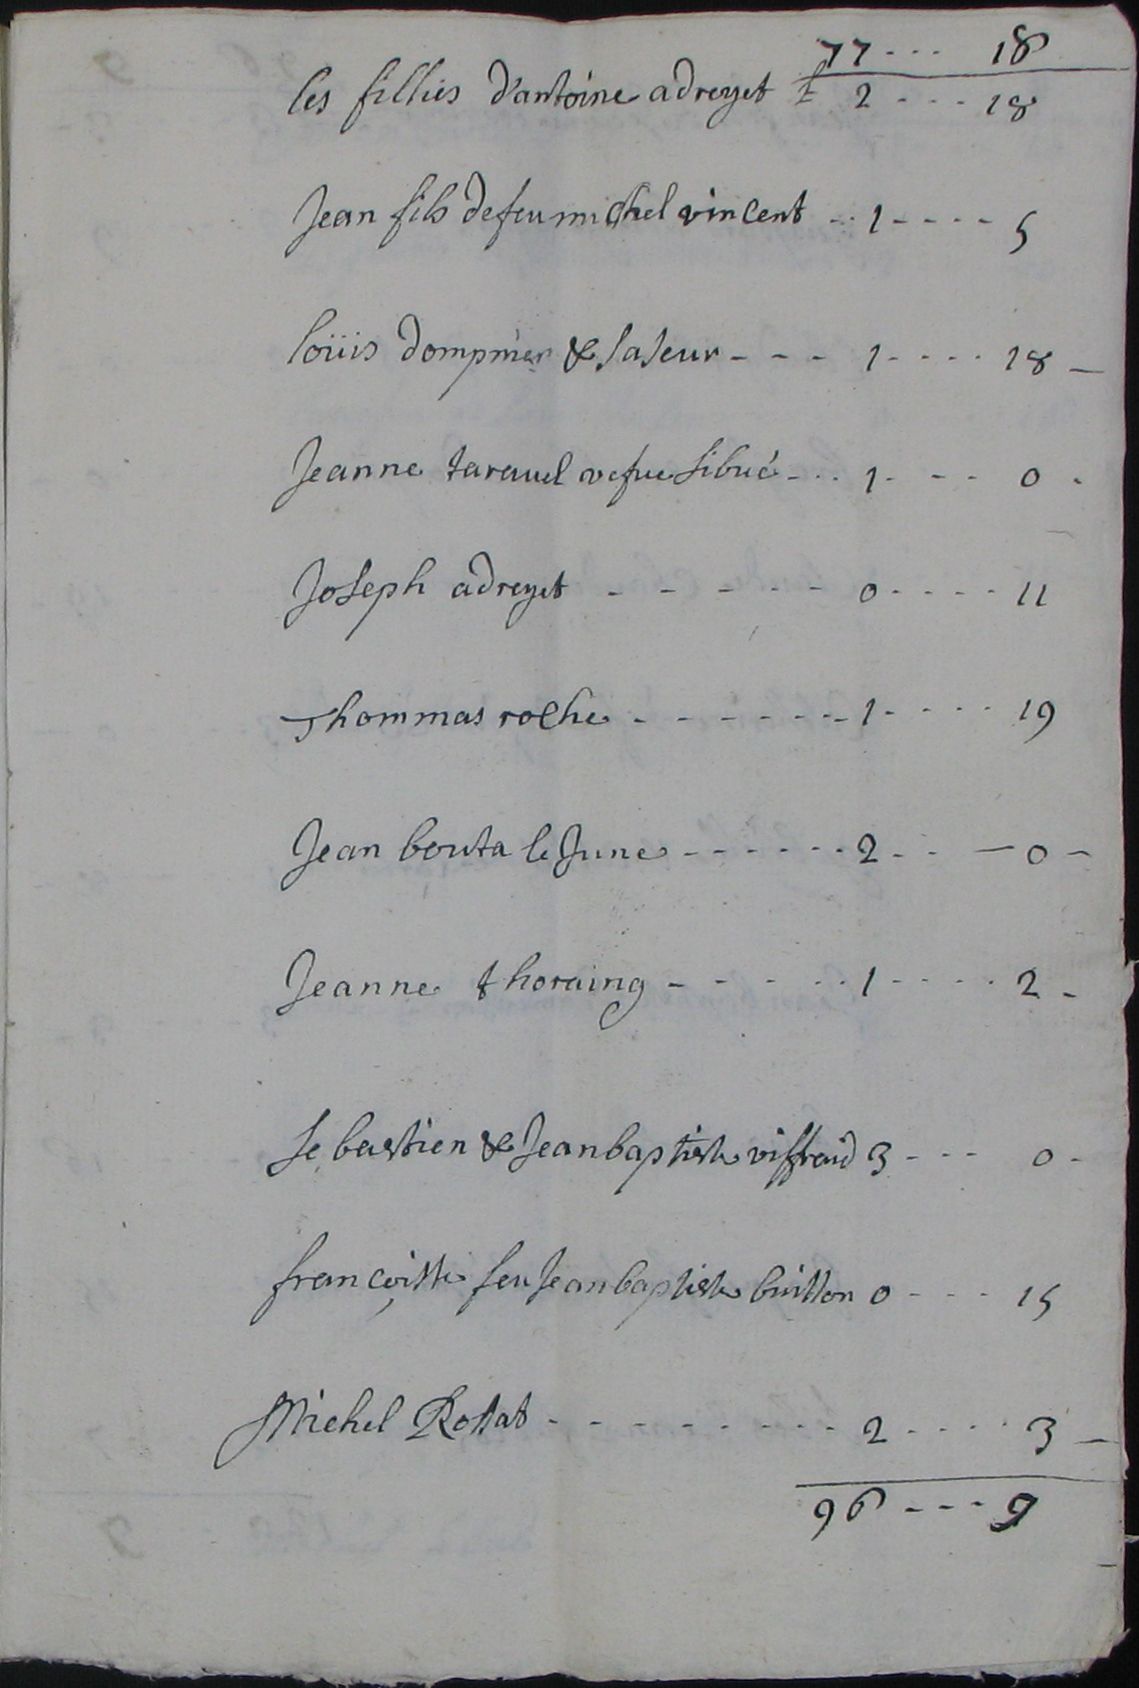 77 --- 18
les fillies d'antoine adreyet ₶ 2 --- 18
Jean fils de feu michel vincent -- 1 ---- 5
loüis dompnier & sa seur --- 1 ---- 18 -
Jeanne taravel vefve sibué --- 1 --- 0 -
Joseph adreyet ------ 0 ---- 11
Thommas roche ------- 1 ---- 19
Jean bouta le June ------ 2 --- 0 -
Jeanne thoraing ----- 1 ---- 2 -
Sebastien & Jean baptiste viffraid 3 --- 0 -
francoise feu Jean baptiste buitton 0 --- 15
Michel Rostat -------- 2 ---- 3 -
96 --- 9